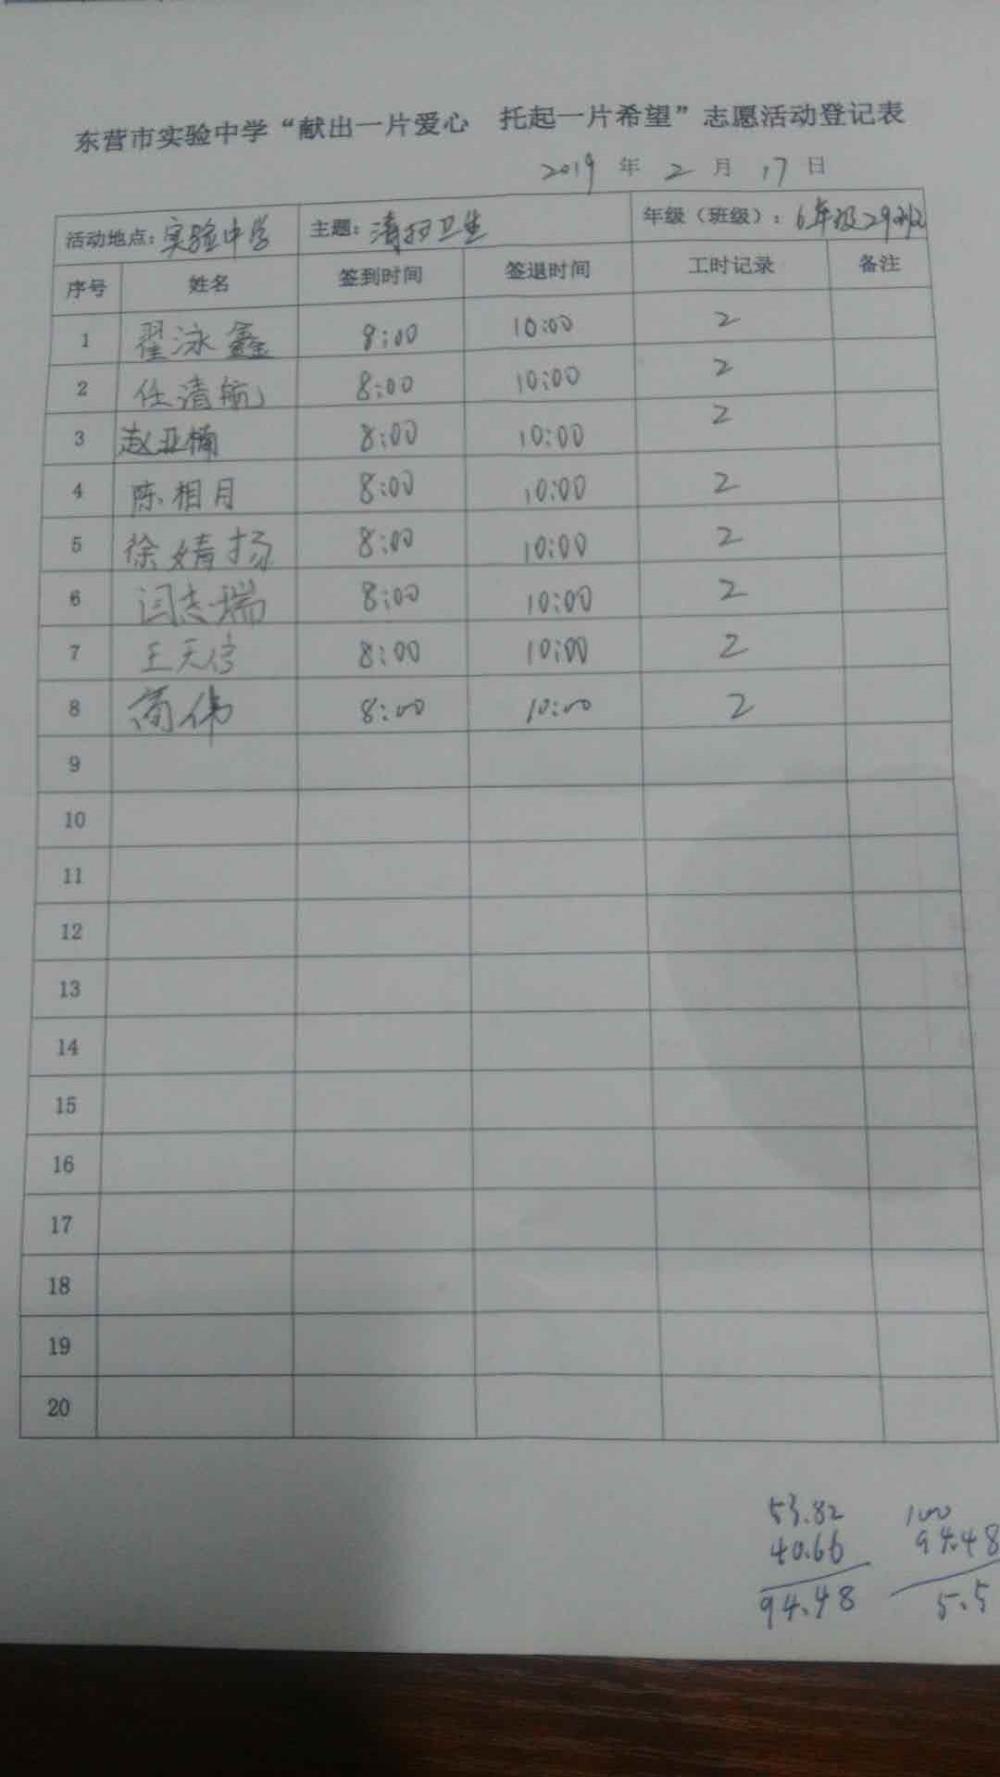 东营市实验中学“献出一片爱心 托起一片希望”志愿活动登记表
2019 年 2 月 17 日
活动地点：实验中学 主题：清扫卫生 年级（班级）：6年级29班
序号 姓名 签到时间 签退时间 工时记录 备注
1 翟泳鑫 8:00 10:00 2
2 任清航 8:00 10:00 2
3 赵亚楠 8:00 10:00 2
4 陈相月 8:00 10:00 2
5 徐婧扬 8:00 10:00 2
6 闫志瑞 8:00 10:00 2
7 王天 8:00 10:00 2
8 伟 8:00 10:00 2
9
10
11
12
13
14
15
16
17
18
19
20
53.82 100
40.66 94.48
94.48 5.5